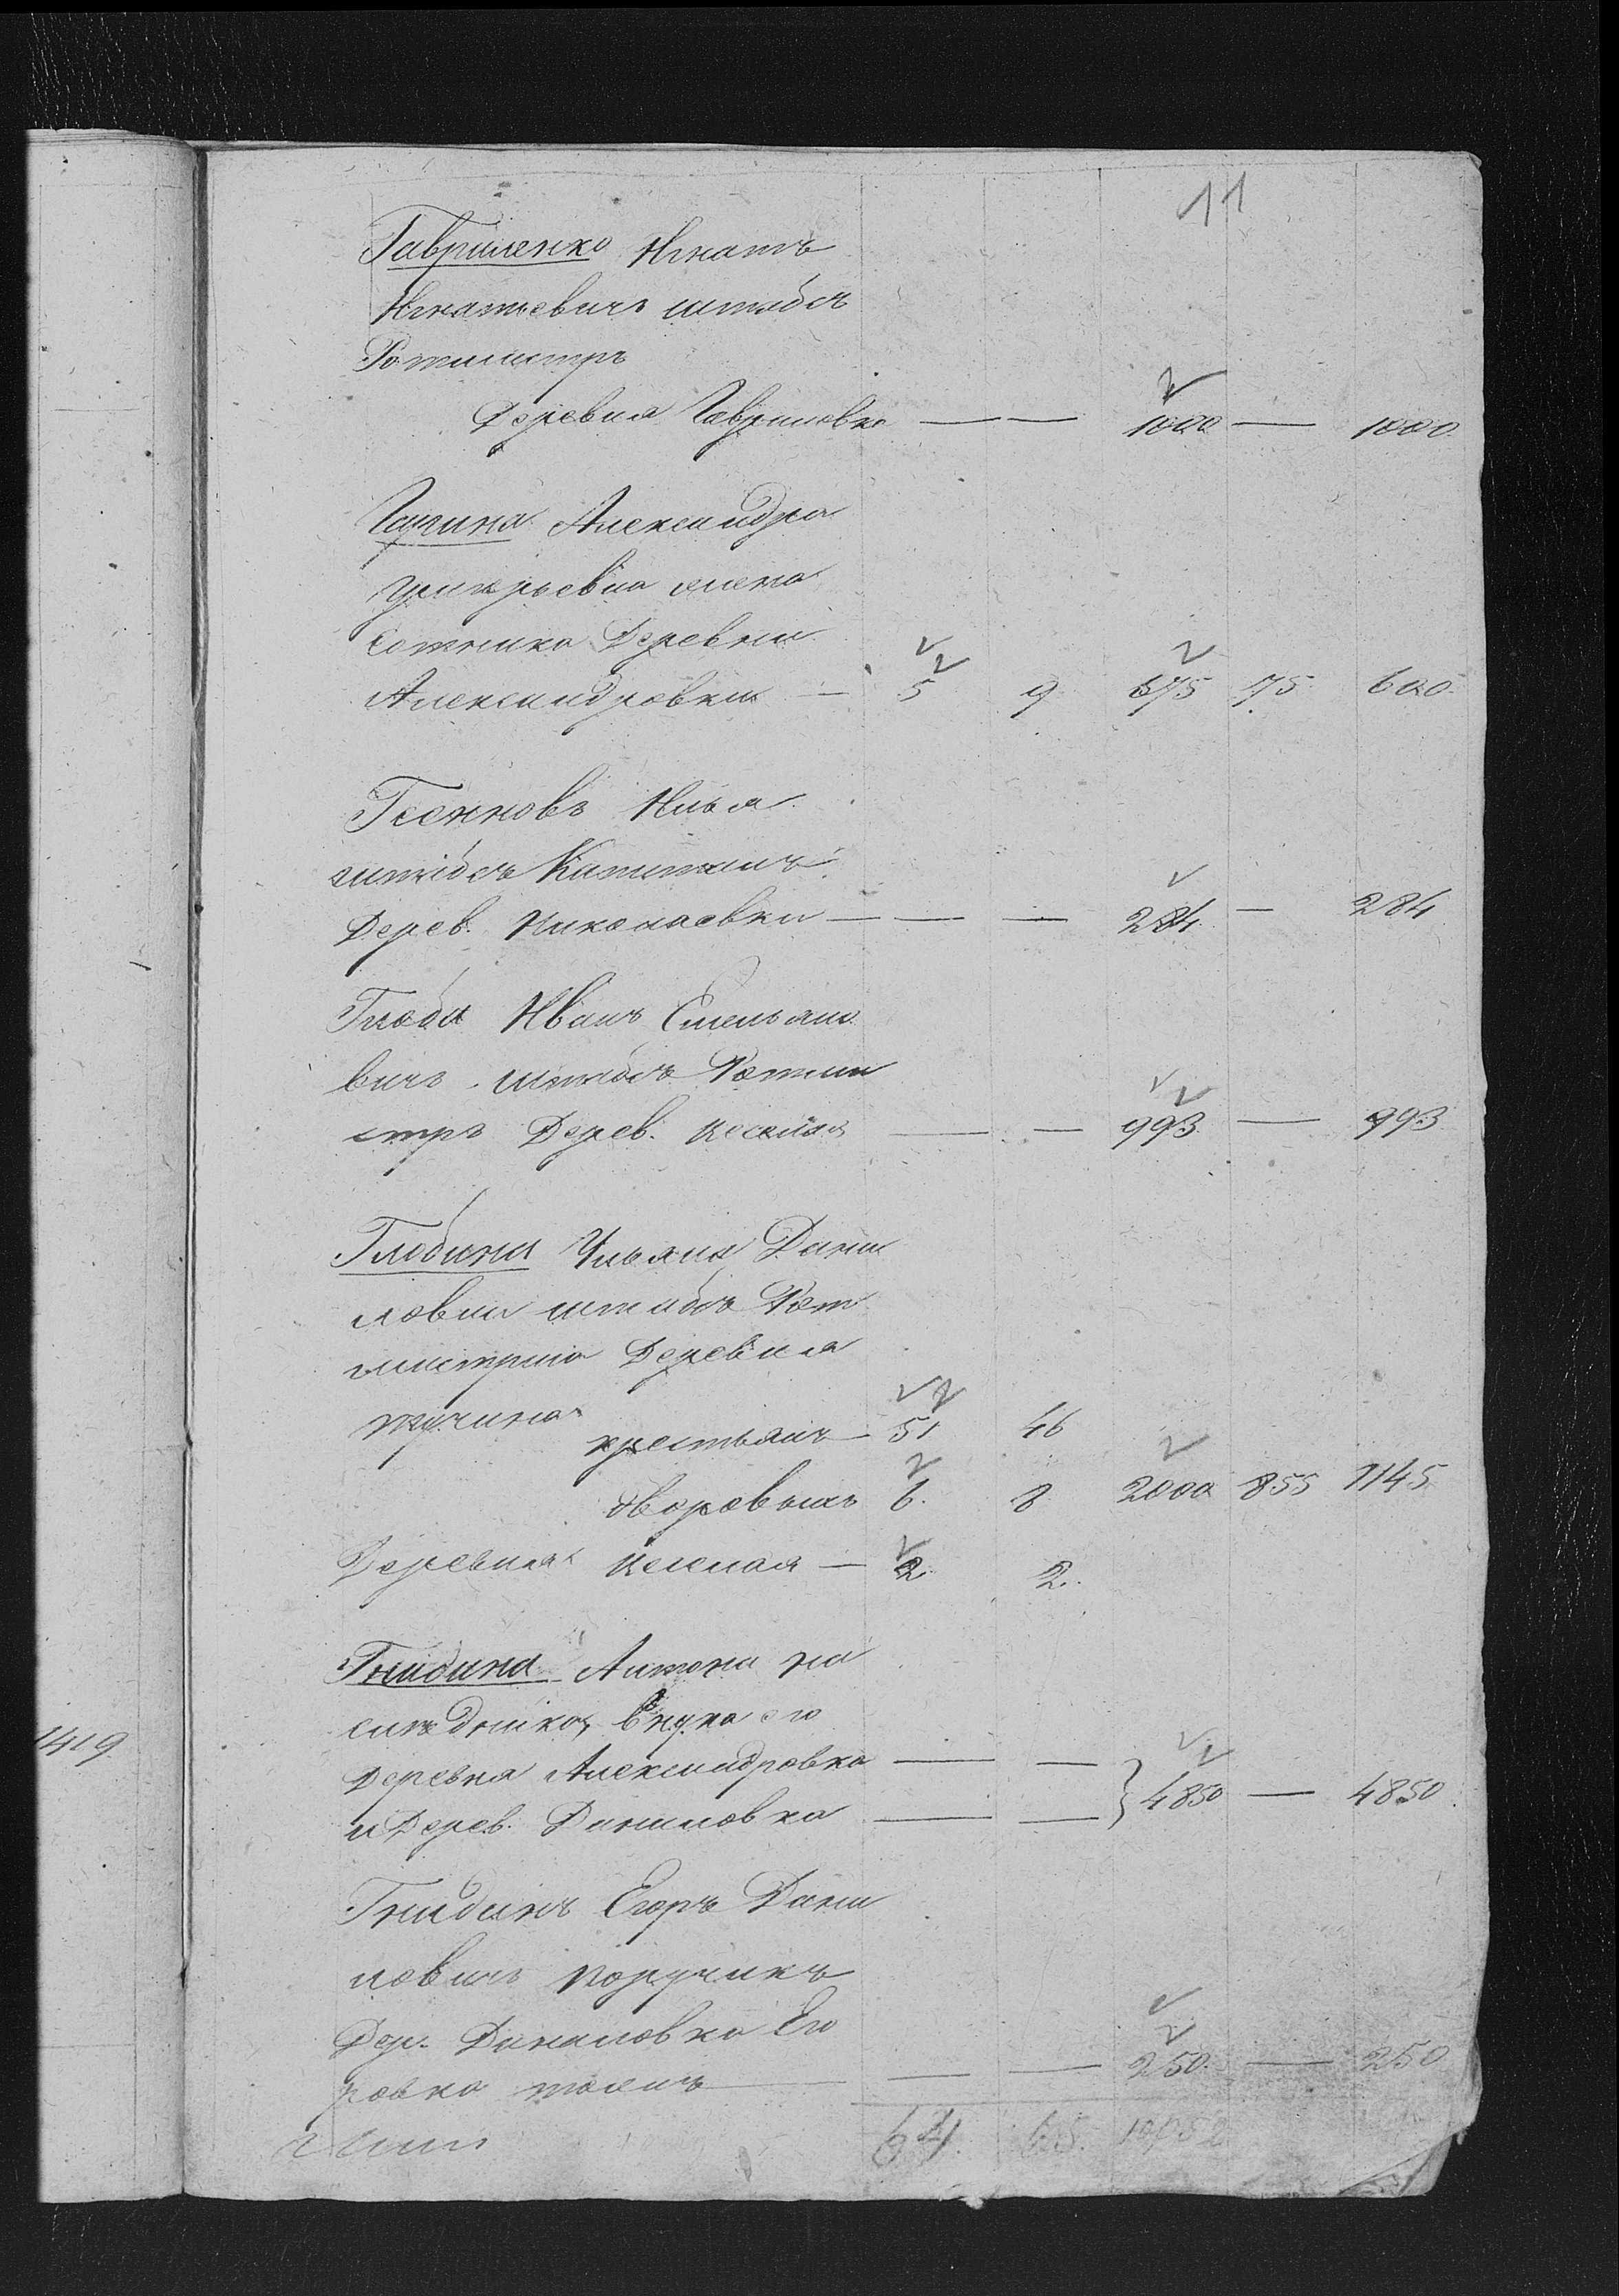 11
Гавриленко Игнатъ
Игнатьевичъ штабсъ
Ротмистръ
Деревня Гавриловка — — 1000 — 1000
Гарина Александра
Григорьевна жена
Сотника Деревни
Александровки — 5 9 675 75 600
Гсенковъ Илья
штабсъ Капитанъ
Дерев. Николаевки — — — 284 — 284
Глоба Иванъ Емельяно
вичъ штабсъ Ротми
стръ Дерев. — — 993 — 993
Глобина Ульяна Дани
ловна штабсъ Рот
мистрша Деревня
крестьянъ — 51 46
дворовыхъ 6. 8 2000 855 1145
Деревня — 2. 2.
Гнидина Антона на
следника, внука его
Деревня Александровка — —
и Дерев. Даниловка — — } 4850 — 4850
Гнидинъ Егоръ Дани
ловичъ поручикъ
Дер. Даниловка Его
ровка тожъ — — — 250. — 250
64. 65. 10052
1419